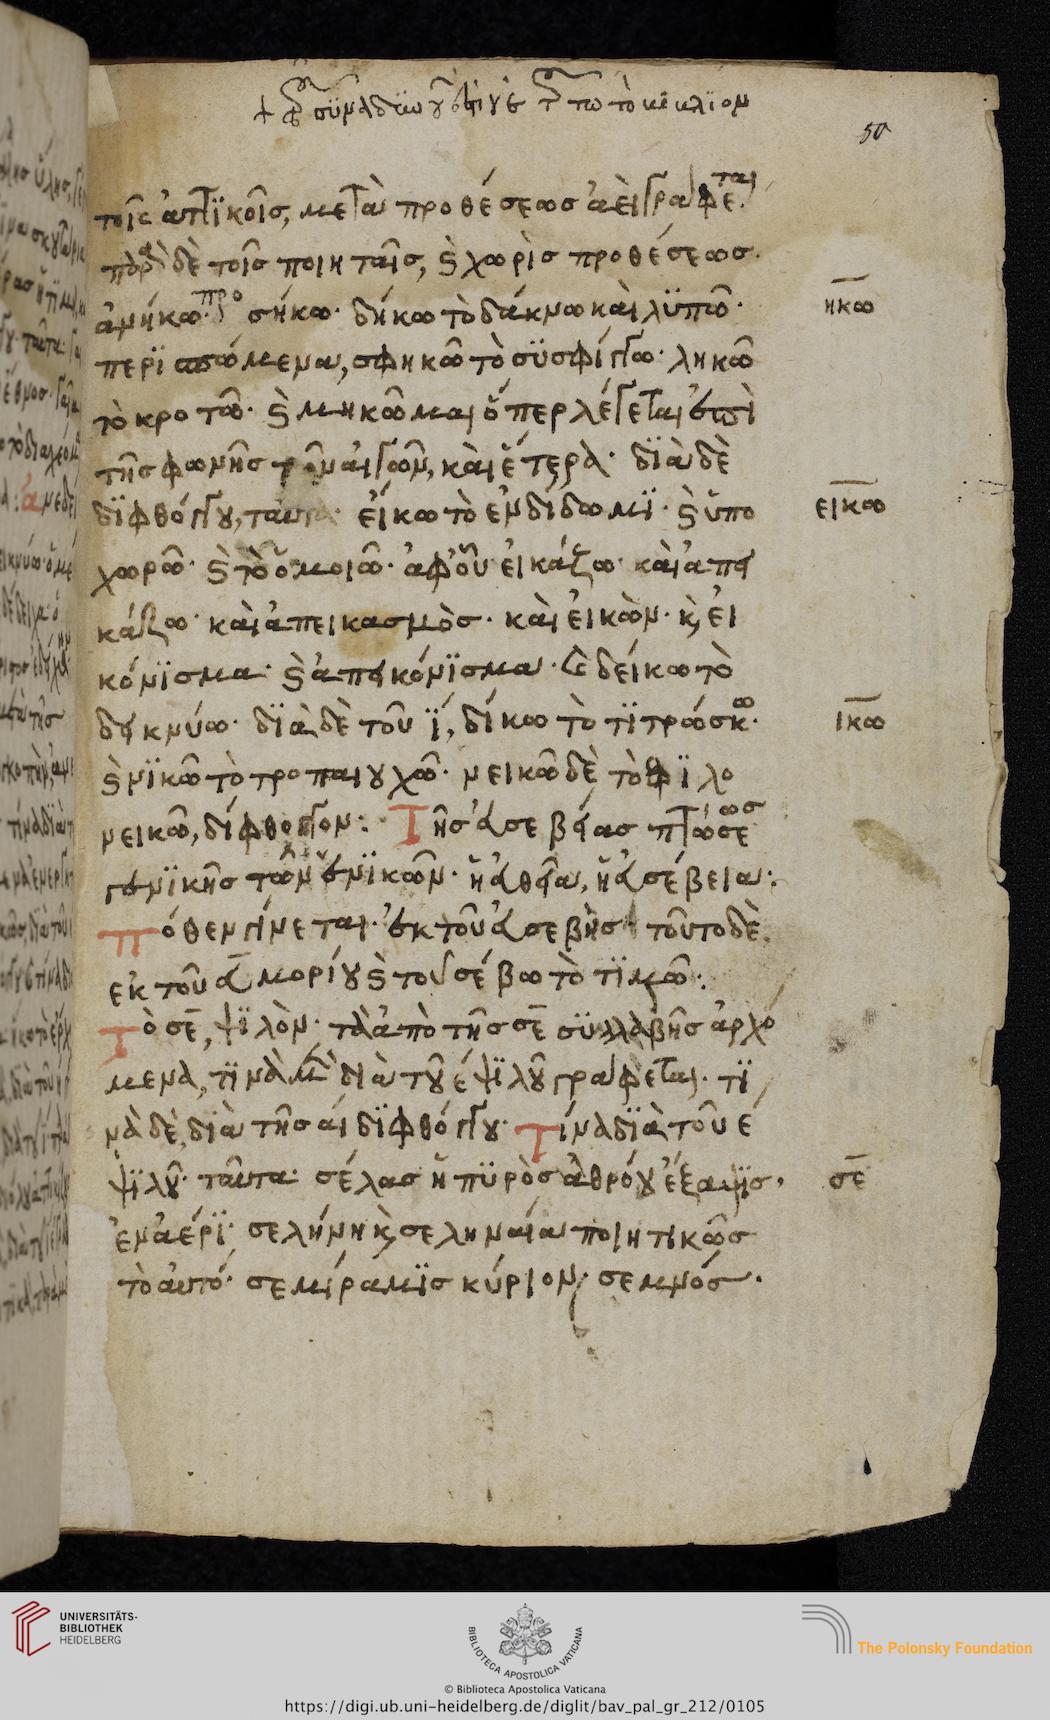 50
τοῖς ἀττϊκοῖς, μετὰ προθέσεως ἀεὶ γράφεται.
παρὰ δὲ τοῖς ποιηταῖς, ϛ χωρὶς προθέσεως.
ἀνήκω. προσήκω. δήκω τὸ δάκνω καὶ λϋπῶ.
ηκω
περϊσπώμενα, σφηκῶ τὸ σϋσφίγγω. ληκῶ
τὸ κροτῶ. ϛ μηκῶμαι ὅπερ λέγεται ἐπὶ
τῆς φωνῆς τῶν αἰγῶν, καὶ ἕτερα. δϊὰ δὲ
δϊφθόγγου, ταῦτα. εἴκω τὸ ἐνδίδωμϊ. ϛ ὑπο
εικω
χωρῶ. ϛ τὸ ὁμοιῶ. ἀφ' οὗ εἰκάζω. καὶ ἀπει
κάζω. καὶ ἀπεικασμὸς. καὶ εἰκὼν. κ, εἰ
κόνϊσμα. ϛ ἀπεικόνϊσμα. δείκω τὸ
δεικνύω. δϊὰ δὲ τοῦ ϊ, δίκω τὸ τϊτρώσκω.
ικω
ϛ νϊκῶ τὸ τροπαιουχῶ. νεικῶ δὲ τὸ φϊλο
νεικῶ, δίφθογγον: Τῆς ἀσεβείας πτώσεως
γενϊκῆς τῶν ἑνϊκῶν. ἡ εὐθεῖα, ἡ ἀσέβεια:
Πόθεν γίνεται. ἐκ τοῦ ἀσεβὴς τοῦτο δὲ
ἐκ τοῦ α μορίου ϛ τοῦ σέβω τὸ τϊμῶ:
Τὸ σε, ψϊλὸν. τὰ ἀπὸ τῆς σε σϋλλαβῆς ἀρχό
μενα, τϊνὰ μὲν διὰ τοῦ ἐ ψϊλοῦ γράφεται. τϊ
νὰ δὲ, διὰ τῆς αι δϊφθόγγου. Τίνα δϊὰ τοῦ ε
ψϊλοῦ. ταῦτα. σέλας ἡ πϋρὸς ἀθρόου ἔξαψϊς,
σε
ἐν ἀέρϊ. σελήνη κ, σεληναία ποιητικῶς
τὸ αὐτό. σεμίραμϊς κύριον, σεμνός.
UNIVERSITÄTS-
BIBLIOTHEK
HEIDELBERG
BIBLIOTECA APOSTOLICA VATICANA
The Polonsky Foundation
© Biblioteca Apostolica Vaticana
https://digi.ub.uni-heidelberg.de/diglit/bav_pal_gr_212/0105